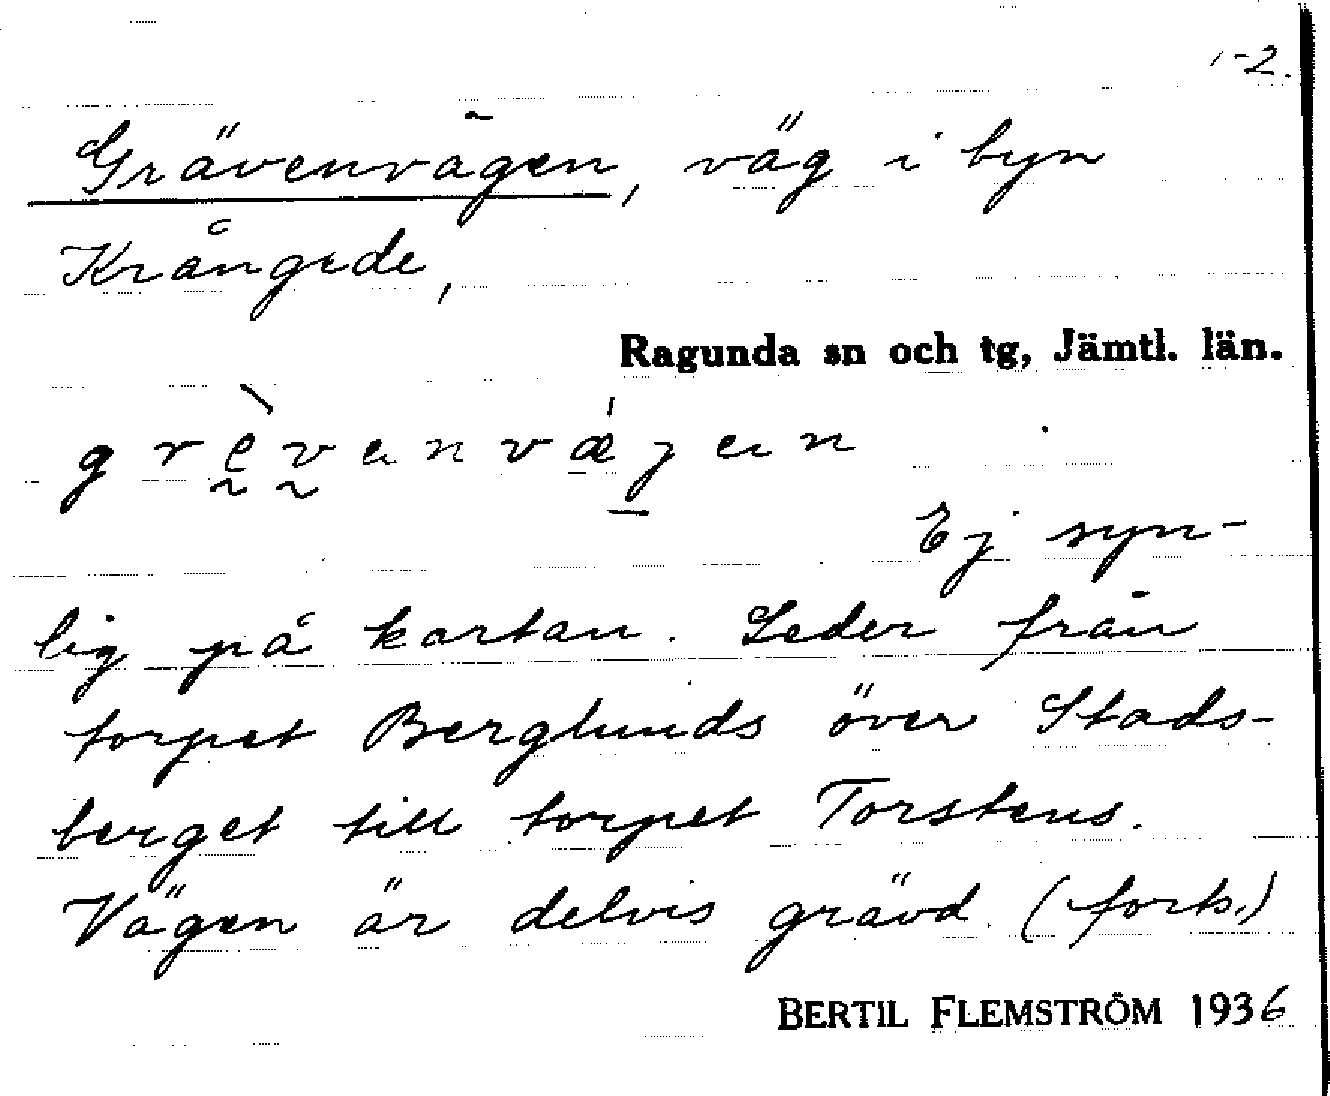 1-2.
Grävenvägen, väg i byn
Krångede,
Ragunda sn och tg, Jämtl. län.
grèvenvǽgen
Ej syn-
lig på kartan. Leder från
torpet Berglunds över Stads-
berget till torpet Torstens.
Vägen är delvis grävd (forts.)
BERTIL FLEMSTRÖM 1936